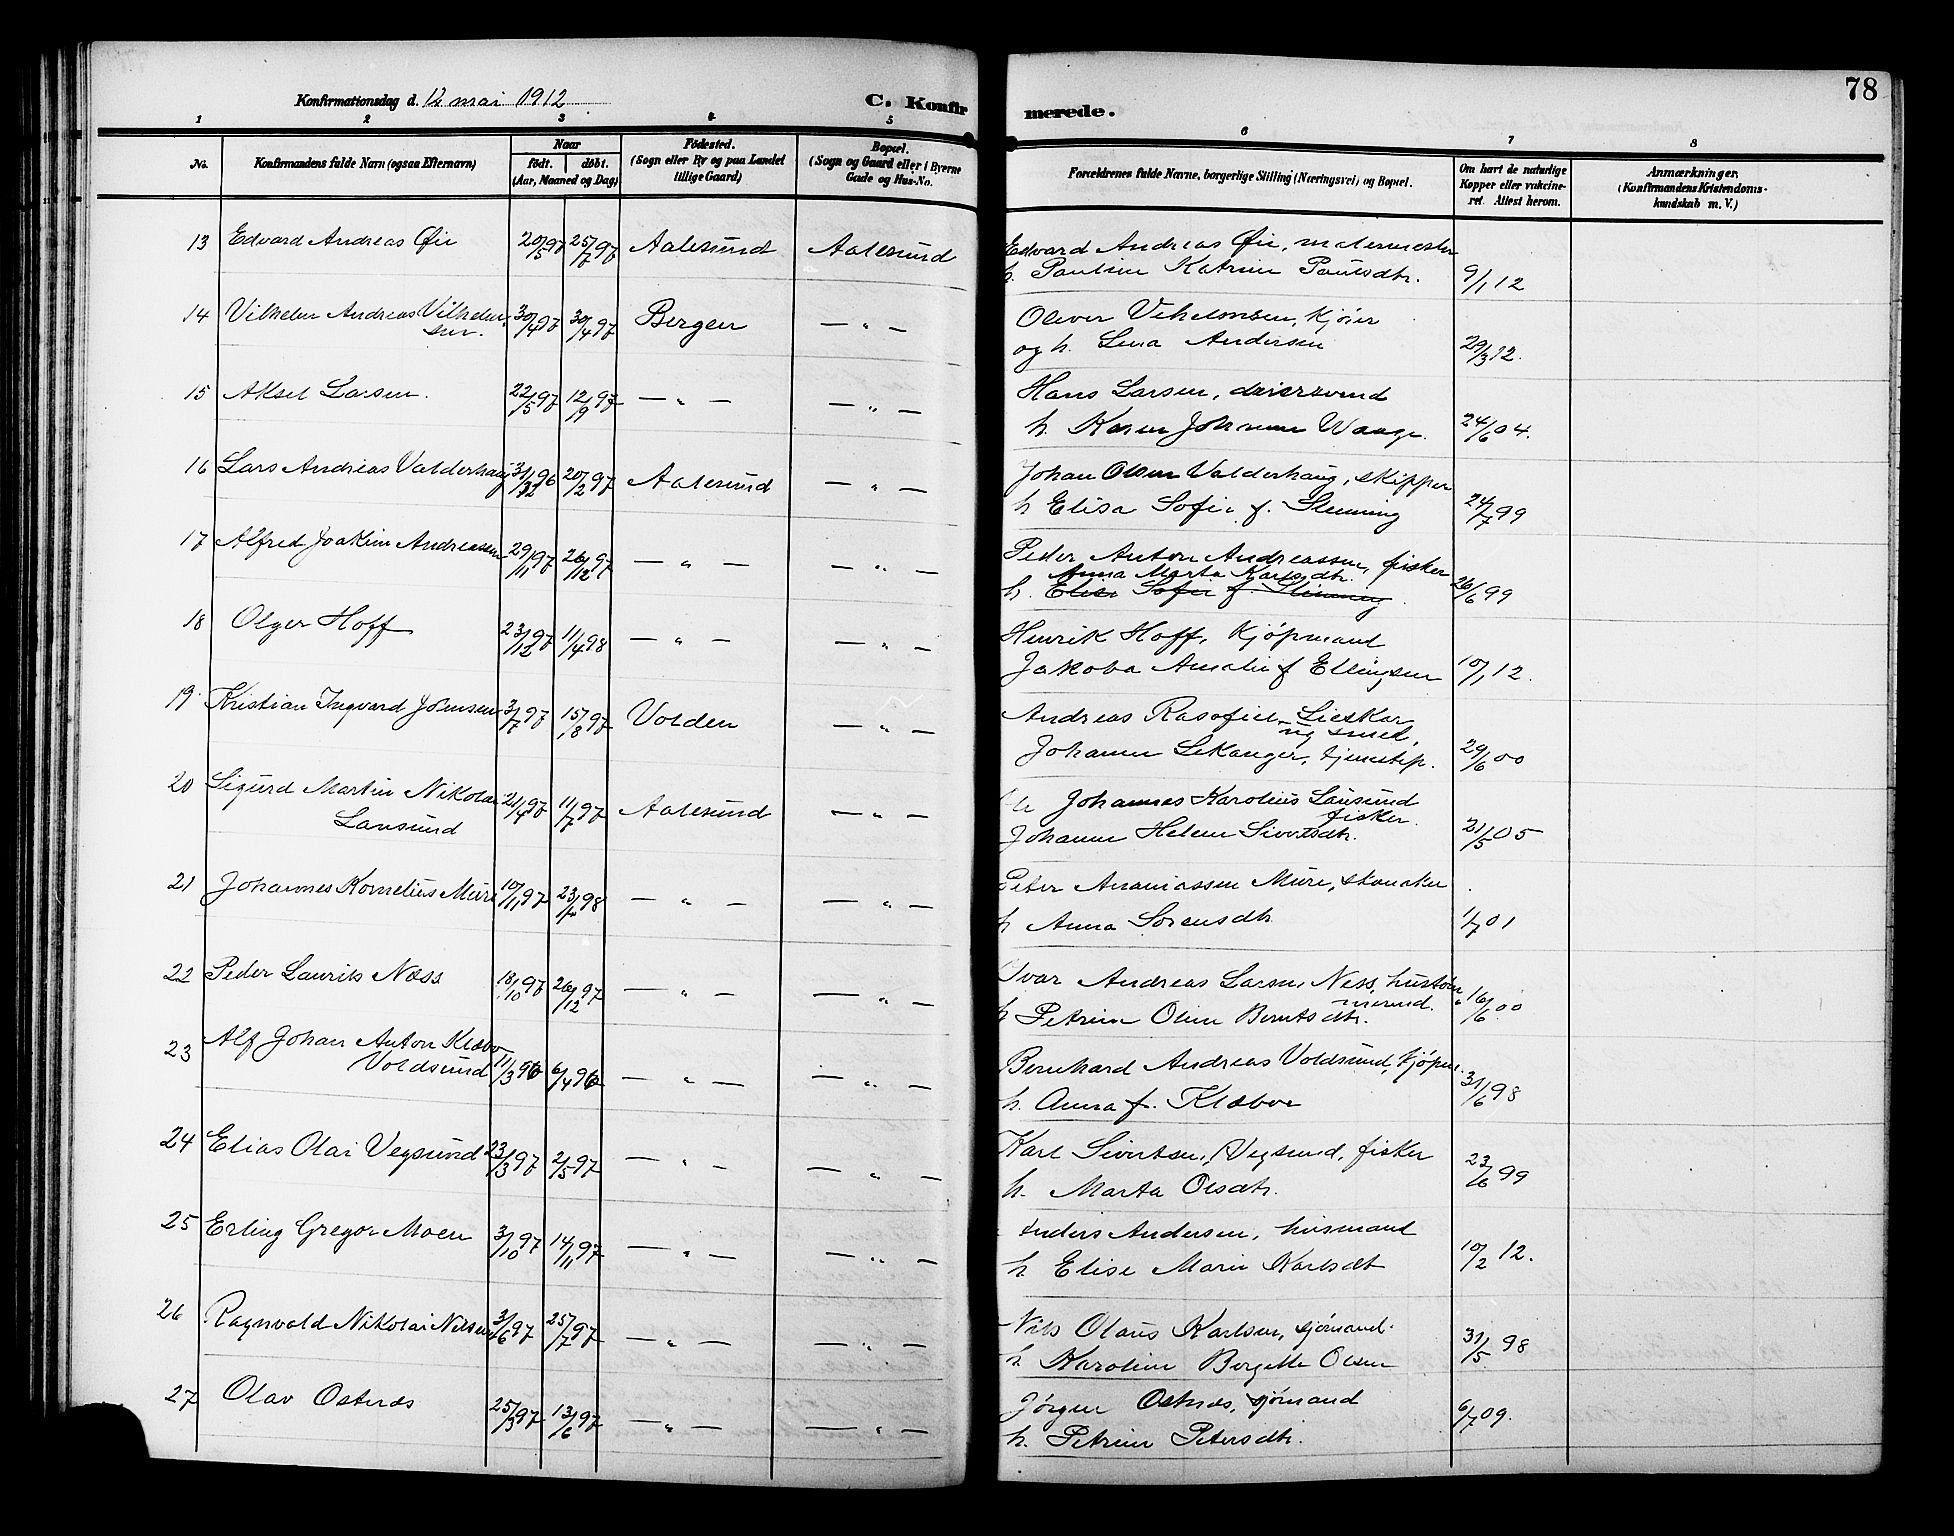 78
Konfirmationsdag d. 12 mai 1912
C. Konfirmerede.
1 2 3 4 5 6 7 8
No.
Konfirmandens fulde Navn (ogsaa Efternavn)
Naar
födt. döbt.
(Aar, Maaned og Dag)
Födested.
(Sogn eller By og paa Landet
tillige Gaard)
Bopæl.
(Sogn og Gaard eller i Byerne
Gade og Hus-No.
Forældrenes fulde Navne, borgerlige Stilling (Næringsvei) og Bopæl.
Om havt de naturlige
Kopper eller vakcine-
ret. Attest herom.
Anmærkninger.
(Konfirmandens Kristendoms-
kundskab m. V.)
13 Edvard Andreas Øie 20/5 97 25/7 97 Aalesund Aalesund Edvard Andreas Øie, malermester
h. Pauline Katrine Paulsdtr. 9/1 12
14 Vilhelm Andreas Vilhelm-
sen. 30/4 97 30/4 97 Bergen — " — Oliver Vihelmsen, kjører
og h. Lina Andersen 29/3 12.
15 Aksel Larsen. 22/5 97 12/9 97 — " — — " — Hans Larsen, dreiersvend
h. Karen Johanne Waage. 24/6 04.
16 Lars Andreas Valderhaug 31/12 96 20/2 97 Aalesund — " — Johan Olsen Valderhaug, skipper
h Elisa Sofie f. Slenning 24/7 99
17 Alfred Joakim Andreassen 29/11 97 26/12 97 — " — — " — Peder Anton Andreassen, fisker
Anna Marta Karlsdtr.
h. Elisa Sofie f. Slenning. 26/6 99
18 Olger Hoff 23/12 97 11/4 98 — " — — " — Henrik Hoff, Kjöpmand
Jakoba Amalie f Ellingsen 10/1 12.
19 Kristian Ingvard Johnsen 3/7 97 15/8 97 Volden — " — Andreas
ug smed,
Johanne Lekanger, tjenestep. 29/6 00
20 Sigurd Martin Nikolai
Lausund 21/4 97 11/7 97 Aalesund — " — Johannes Karolius Lausund
fisker.
Johanne Helene Sivertsdtr. 21/5 05
21 Johannes Kornelius Mure 10/11 97 23/ 98 — " — — " — Peter Ananiassen Mure, skomaker
h Anna Sorensdtr. 1/7 01
22 Peder Laurits Næss 18/10 97 26/12 97 — " — — " — Ivar Andreas Larsen Ness, hustöm-
mermd.
h Petrine Oline Berntsdtr. 16/6 00
23 Alf Johan Anton Klæbo
Voldsund 11/3 96 6/4 96 — " — — " — Bernhard Andreas Voldsund, kjöpm.
h. Anna f. Klæboe 31/6 98
24 Elias Olai Vegsund 23/3 97 2/5 97 — " — — " — Karl Sivertsen, Vegsund, fisker
h. Marta Olsdtr. 23/6 99
25 Erling Gregor Moen 3/10 97 14/11 97 — " — — " — Anders Andersen, husmand
h. Elise Marie Karlsdt 10/2 12.
26 Ragnvald Nikolai Nilsen 3/6 97 25/7 97 — " — — " — Nils Olaus Karlsen, sjömand.
h. Karoline Bergitte Olsen 31/5 98
27 Olav Osterås 25/3 97 13/6 97 — " — — " — Jörgen Osterås, sjömand
h. Petrine Petersdtr. 6/7 09.